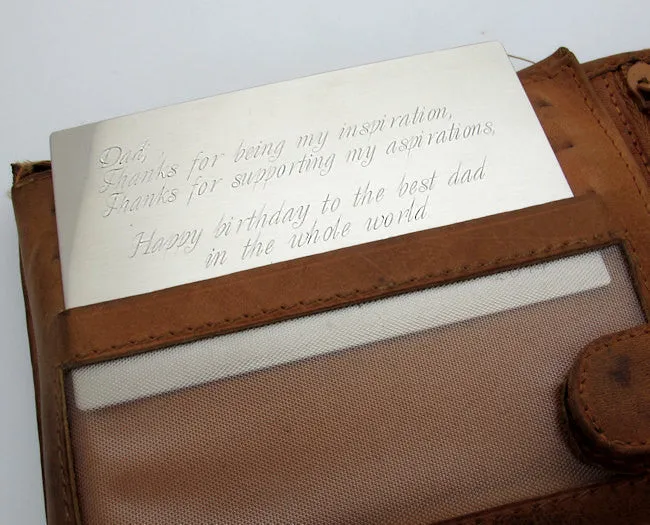 Dad,
Thanks for being my inspiration,
Thanks for supporting my aspirations,
Happy birthday to the best dad
in the whole world